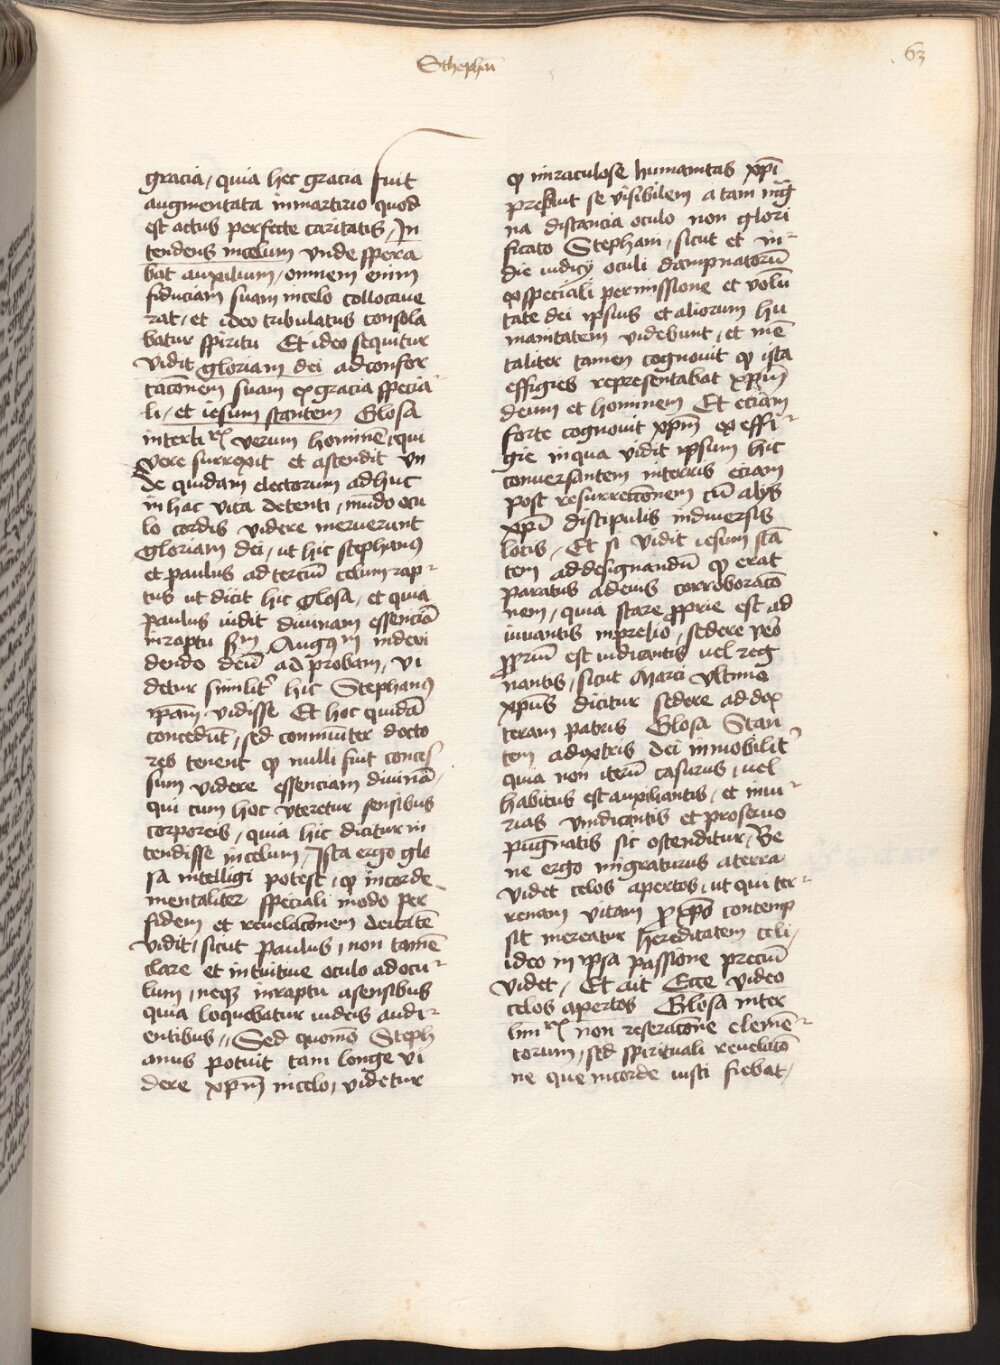 Stephani
63
gracia, quia hec gracia fuit
augmentata in martirio quod
est actus perfecte caritatis, In
tendens in celum Unde spera
bat auxilium, omnem enim
fiduciam suam in celo collocaue
rat, et ideo tribulatus consola
batur spiritu Et ideo sequitur
Vidit gloriam dei ad confor
tacōnem suam ex gracia specia
li, et iesum stantem Glosa
interli verum hominē, qui
vere surrexit et ascendit vn
de quidam electorum adhuc
in hac vita detenti, mundo ocu
lo cordis videre meruerunt
gloriam dei, ut hic stephanꝰ
et paulus ad terciū celum rap-
tus ut dicit hic glosa, et quia
paulus vidit diuinam essenciā
in raptu sᵐ Augᵐ in devi
dendo deū ad probam, vi
detur similitˀ hic Stephanꝰ
ipam vidisse Et hoc quidā
concedūt, sed cōmuniter docto
res tenent ꝙ nulli fuit conces
sum videre essenciam diuinā,
qui cum hoc vteretur sensibus
corporeis, quia hic dicitur in
tendisse in celum, Ista ergo glo
sa intelligi potest, ꝙ in corde
mentaliter speciali modo per
fidem et reuelacōnem deitatē
vidit, sicut paulus, non tamē
clare et intuitiue oculo ad ocu-
lum, neqꝫ in raptu a sensibus
quia loquebatur iudeis audi-
entibus,, Sed quomō Steph
anus potuit tam longe vi
dere xp̄m in celo, videtur
ꝙ miraculose humanitas xp̄i
prebuit se visibilem a tam mag
na distancia oculo non glori
ficato Stephani, sicut et in-
die iudicij oculi dampnatorū
ex speciali permissione et volū
tate dei ipsius et aliorum hu
manitatem videbunt, et mē
taliter tamen cognouit ꝙ ista
effigies representabat xp̄m
deum et hominem Et eciam
forte cognouit xp̄m ex effi-
gie in qua vidit ipsum hic
conuersantem in terris eciam
post resurrectōnem cū alijs
xp̄i discipulis in diuersis
locis, Et si vidit iesum stā
tem ad designandū ꝙ erat
paratus ad eius corroboracō
nem, quia stare ꝓprie est ad
iuuantis in prelio, sedere ṽo
ꝓpriū est iudicantis uel reg
nantis, sicut Marci vltimo
xp̄us dicitur sedere ad dex
teram patris Glosa Stan
tem a dextris dei immobilitˀ
quia non iterū casurus, uel
habitus est auxiliantis, et iniu-
rias vindicantis et pro seruo
pugnatis sic ostenditur, Be
ne ergo migraturus a terra
videt celos apertos, ut qui ter-
renam vitam ꝓ xp̄o contemp
sit mereatur hereditatem celi,
ideo in ipsa passione preciū
videt, Et ait Ecce video
celos apertos Glosa inter
lini non reseracōne elemē-
torum, sed spirituali reuelacō
ne que in corde iusti fiebat,